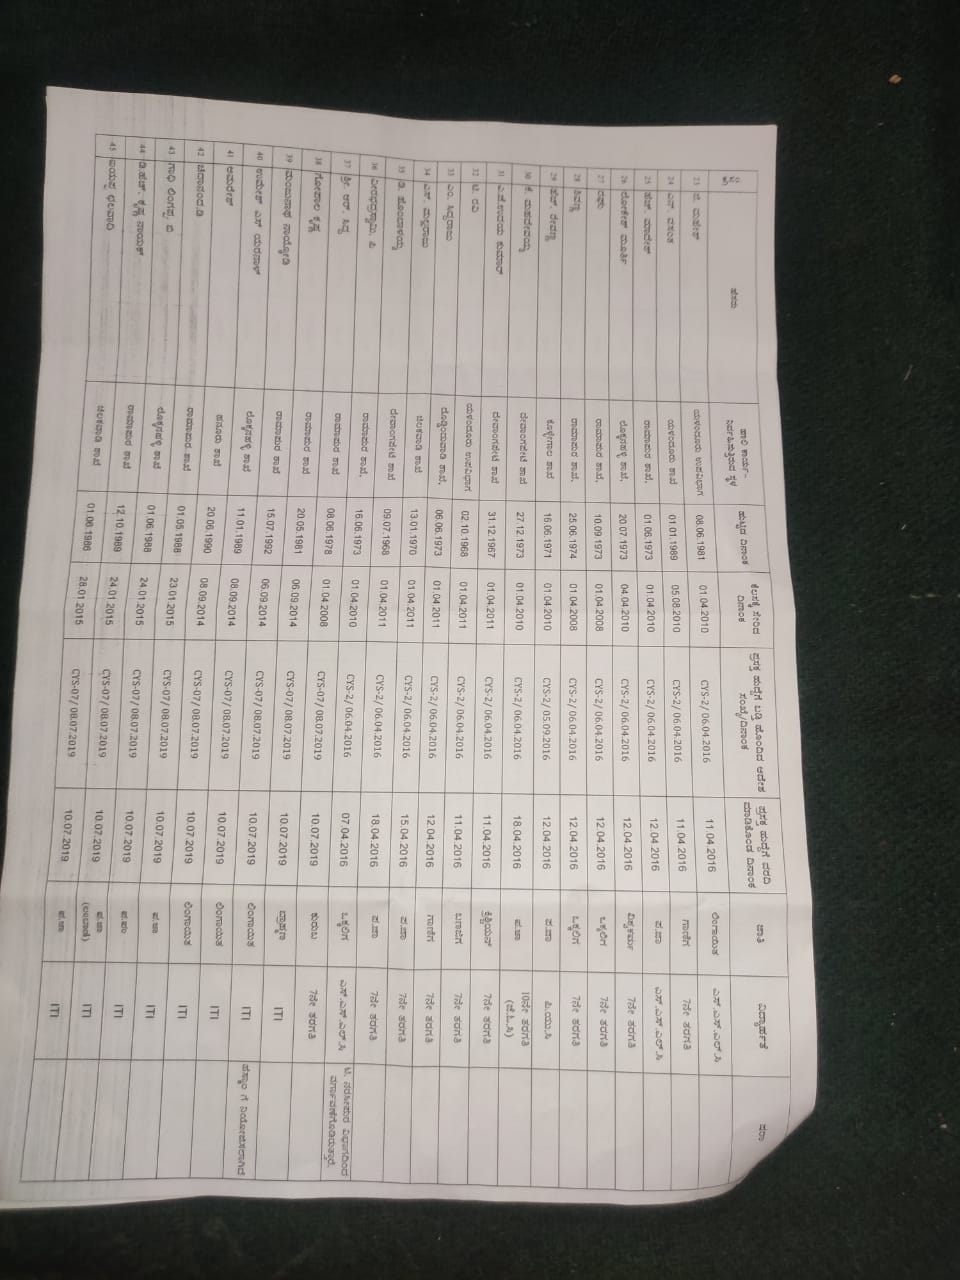 ಕ್ರ ಸಂ ಹೆಸರು ಹಾಲಿ ಕಾರ್ಯ-ನಿರ್ವಹಿಸುತ್ತಿರುವ ಸ್ಥಳ ಹುಟ್ಟಿದ ದಿನಾಂಕ ಕೆಲಸಕ್ಕೆ ಸೇರಿದ ದಿನಾಂಕ ಪ್ರಸ್ತಕ್ತ ಹುದ್ದೆಗೆ ಬಡ್ತಿ ಹೊಂದಿದ ಆದೇಶ ಸಂಖ್ಯೆ/ದಿನಾಂಕ ಪ್ರಸ್ತಕ್ತ ಹುದ್ದೆಗೆ ವರದಿ ಮಾಡಿಕೊಂಡ ದಿನಾಂಕ ಜಾತಿ ವಿದ್ಯಾರ್ಹತೆ ಷರಾ
23 ಜಿ. ಮಹೇಶ್ ಯಳಂದೂರು ಉಪವಿಭಾಗ 08.06.1981 01.04.2010 CYS-2/ 06.04.2016 11.04.2016 ಲಿಂಗಾಯತ ಎಸ್.ಎಸ್.ಎಲ್.ಸಿ
24 ಎನ್ ವಸಂತ ಯಳಂದೂರು ಶಾಖೆ 01.01.1989 05.08.2010 CYS-2/ 06.04.2016 11.04.2016 ಗಾಣಿಗ 7ನೇ ತರಗತಿ
25 ಹೆಚ್. ಮಾದೇಶ್ ರಾಮಾಪುರ ಶಾಖೆ. 01.06.1973 01.04.2010 CYS-2/ 06.04.2016 12.04.2016 ಪ.ಜಾ ಎಸ್.ಎಸ್.ಎಲ್.ಸಿ
26 ಲೋಕೇಶ್ ಮೂರ್ತಿ ಲೊಕ್ಕನಹಳ್ಳಿ ಶಾಖೆ 20.07.1973 04.04.2010 CYS-2/ 06.04.2016 12.04.2016 ವಿಶ್ವಕರ್ಮ 7ನೇ ತರಗತಿ
27 ರಾಜು ರಾಮಾಪುರ ಶಾಖೆ. 10.09.1973 01.04.2008 CYS-2/ 06.04.2016 12.04.2016 ಒಕ್ಕಲಿಗ 7ನೇ ತರಗತಿ
28 ಶಿವಣ್ಣ ರಾಮಾಪುರ ಶಾಖೆ. 25.06.1974 01.04.2008 CYS-2/ 06.04.2016 12.04.2016 ಒಕ್ಕಲಿಗ 7ನೇ ತರಗತಿ
29 ಹೆಚ್. ರೇವಣ್ಣ ಕೊಳ್ಳೇಗಾಲ ಶಾಖೆ 16.06.1971 01.04.2010 CYS-2/ 05.09.2016 12.04.2016 ಪ.ಜಾ ಪಿ.ಯು.ಸಿ
30 ಕೆ. ಮಹದೇವಯ್ಯ ದೇವಾಂಗಪೇಟೆ ಶಾಖೆ 27.12.1973 01.04.2010 CYS-2/ 06.04.2016 18.04.2016 ಪ.ಜಾ 10ನೇ ತರಗತಿ (ಜೆ.ಓ.ಸಿ)
31 ಎ.ಜೆ.ಉದಯ ಕುಮಾರ್ ದೇವಾಂಗಪೇಟೆ ಶಾಖೆ 31.12.1967 01.04.2011 CYS-2/ 06.04.2016 11.04.2016 ಕ್ರಿಶ್ಚಿಯನ್ 7ನೇ ತರಗತಿ
32 ಟಿ. ರವಿ ಯಳಂದೂರು ಉಪವಿಭಾಗ 02.10.1968 01.04.2011 CYS-2/ 06.04.2016 11.04.2016 ಬಣಜಿಗ 7ನೇ ತರಗತಿ
33 ಎಂ. ಸಿದ್ದರಾಜು ದೊಡ್ಡಿಂದುವಾಡಿ ಶಾಖೆ. 06.06.1973 01.04.2011 CYS-2/ 06.04.2016 12.04.2016 ಗಾಣಿಗ 7ನೇ ತರಗತಿ
34 ಎಸ್. ಮಲ್ಲರಾಜು ಚಿಲಕವಾಡಿ ಶಾಖೆ 13.01.1970 01.04.2011 CYS-2/ 06.04.2016 15.04.2016 ಪ.ಜಾ 7ನೇ ತರಗತಿ
35 ಡಿ. ಹೊಂಬಾಳಯ್ಯ ದೇವಾಂಗಪೇಟೆ ಶಾಖೆ 09.07.1968 01.04.2011 CYS-2/ 06.04.2016 18.04.2016 ಪ.ಜಾ 7ನೇ ತರಗತಿ
36 ವೀರಭದ್ರಸ್ವಾಮಿ. ಪಿ ರಾಮಾಪುರ ಶಾಖೆ. 16.06.1973 01.04.2010 CYS-2/ 06.04.2016 07.04.2016 ಒಕ್ಕಲಿಗ ಎಸ್.ಎಸ್.ಎಲ್.ಸಿ ಟಿ. ನರಸೀಪುರ ವಿಭಾಗದಿಂದ ವರ್ಗಾವಣೆಗೊಂಡಿರುತ್ತಾರೆ.
37 ಶ್ರೀ. ಆರ್. ಸಿದ್ದ ರಾಮಾಪುರ ಶಾಖೆ 08.06.1978 01.04.2008 CYS-07/ 08.07.2019 10.07.2019 ಕುರುಬ 7ನೇ ತರಗತಿ
38 ಗೋಪಾಲ ಕೃಷ್ಣ ರಾಮಾಪುರ ಶಾಖೆ 20.05.1981 06.09.2014 CYS-07/ 08.07.2019 10.07.2019 ಬ್ರಾಹ್ಮಣ ITI
39 ಮಂಜುನಾಥ ನಾಯ್ಕೋಡಿ ರಾಮಾಪುರ ಶಾಖೆ 15.07.1992 06.09.2014 CYS-07/ 08.07.2019 10.07.2019 ಲಿಂಗಾಯತ ITI ಹನ್ನೂರು ಗೆ ನಿಯೋಜಿಸಲಾಗಿದೆ
40 ಉಮೇಶ್ ಎಸ್ ಯರನಾಳ್ ಲೊಕ್ಕನಹಳ್ಳಿ ಶಾಖೆ 11.01.1989 08.09.2014 CYS-07/ 08.07.2019 10.07.2019 ಲಿಂಗಾಯತ ITI
41 ಅಮರೇಶ್ ಹನೂರು ಶಾಖೆ 20.06.1990 08.09.2014 CYS-07/ 08.07.2019 10.07.2019 ಲಿಂಗಾಯತ ITI
42 ಚಿದಾನಂದ.ಡಿ ರಾಮಾಪುರ ಶಾಖೆ 01.05.1988 23.01.2015 CYS-07/ 08.07.2019 10.07.2019 ಪ.ಜಾ ITI
43 ಗಾಧಿ ಲಿಂಗಪ್ಪ. ಬಿ ಲೊಕ್ಕನಹಳ್ಳಿ ಶಾಖೆ 01.06.1988 24.01.2015 CYS-07/ 08.07.2019 10.07.2019 ಪ.ಪಂ ITI
44 ಡಿ.ಹೆಚ್. ಕೃಷ್ಣ ನಾಯಕ್ ರಾಮಾಪುರ ಶಾಖೆ 12.10.1989 24.01.2015 CYS-07/ 08.07.2019 10.07.2019 ಪ.ಜಾ (ಲಂಬಾಣಿ) ITI
45 ಐಯಪ್ಪ ಛಲವಾದಿ ಚಿಲಕವಾಡಿ ಶಾಖೆ 01.06.1986 28.01.2015 CYS-07/ 08.07.2019 10.07.2019 ಪ.ಜಾ ITI